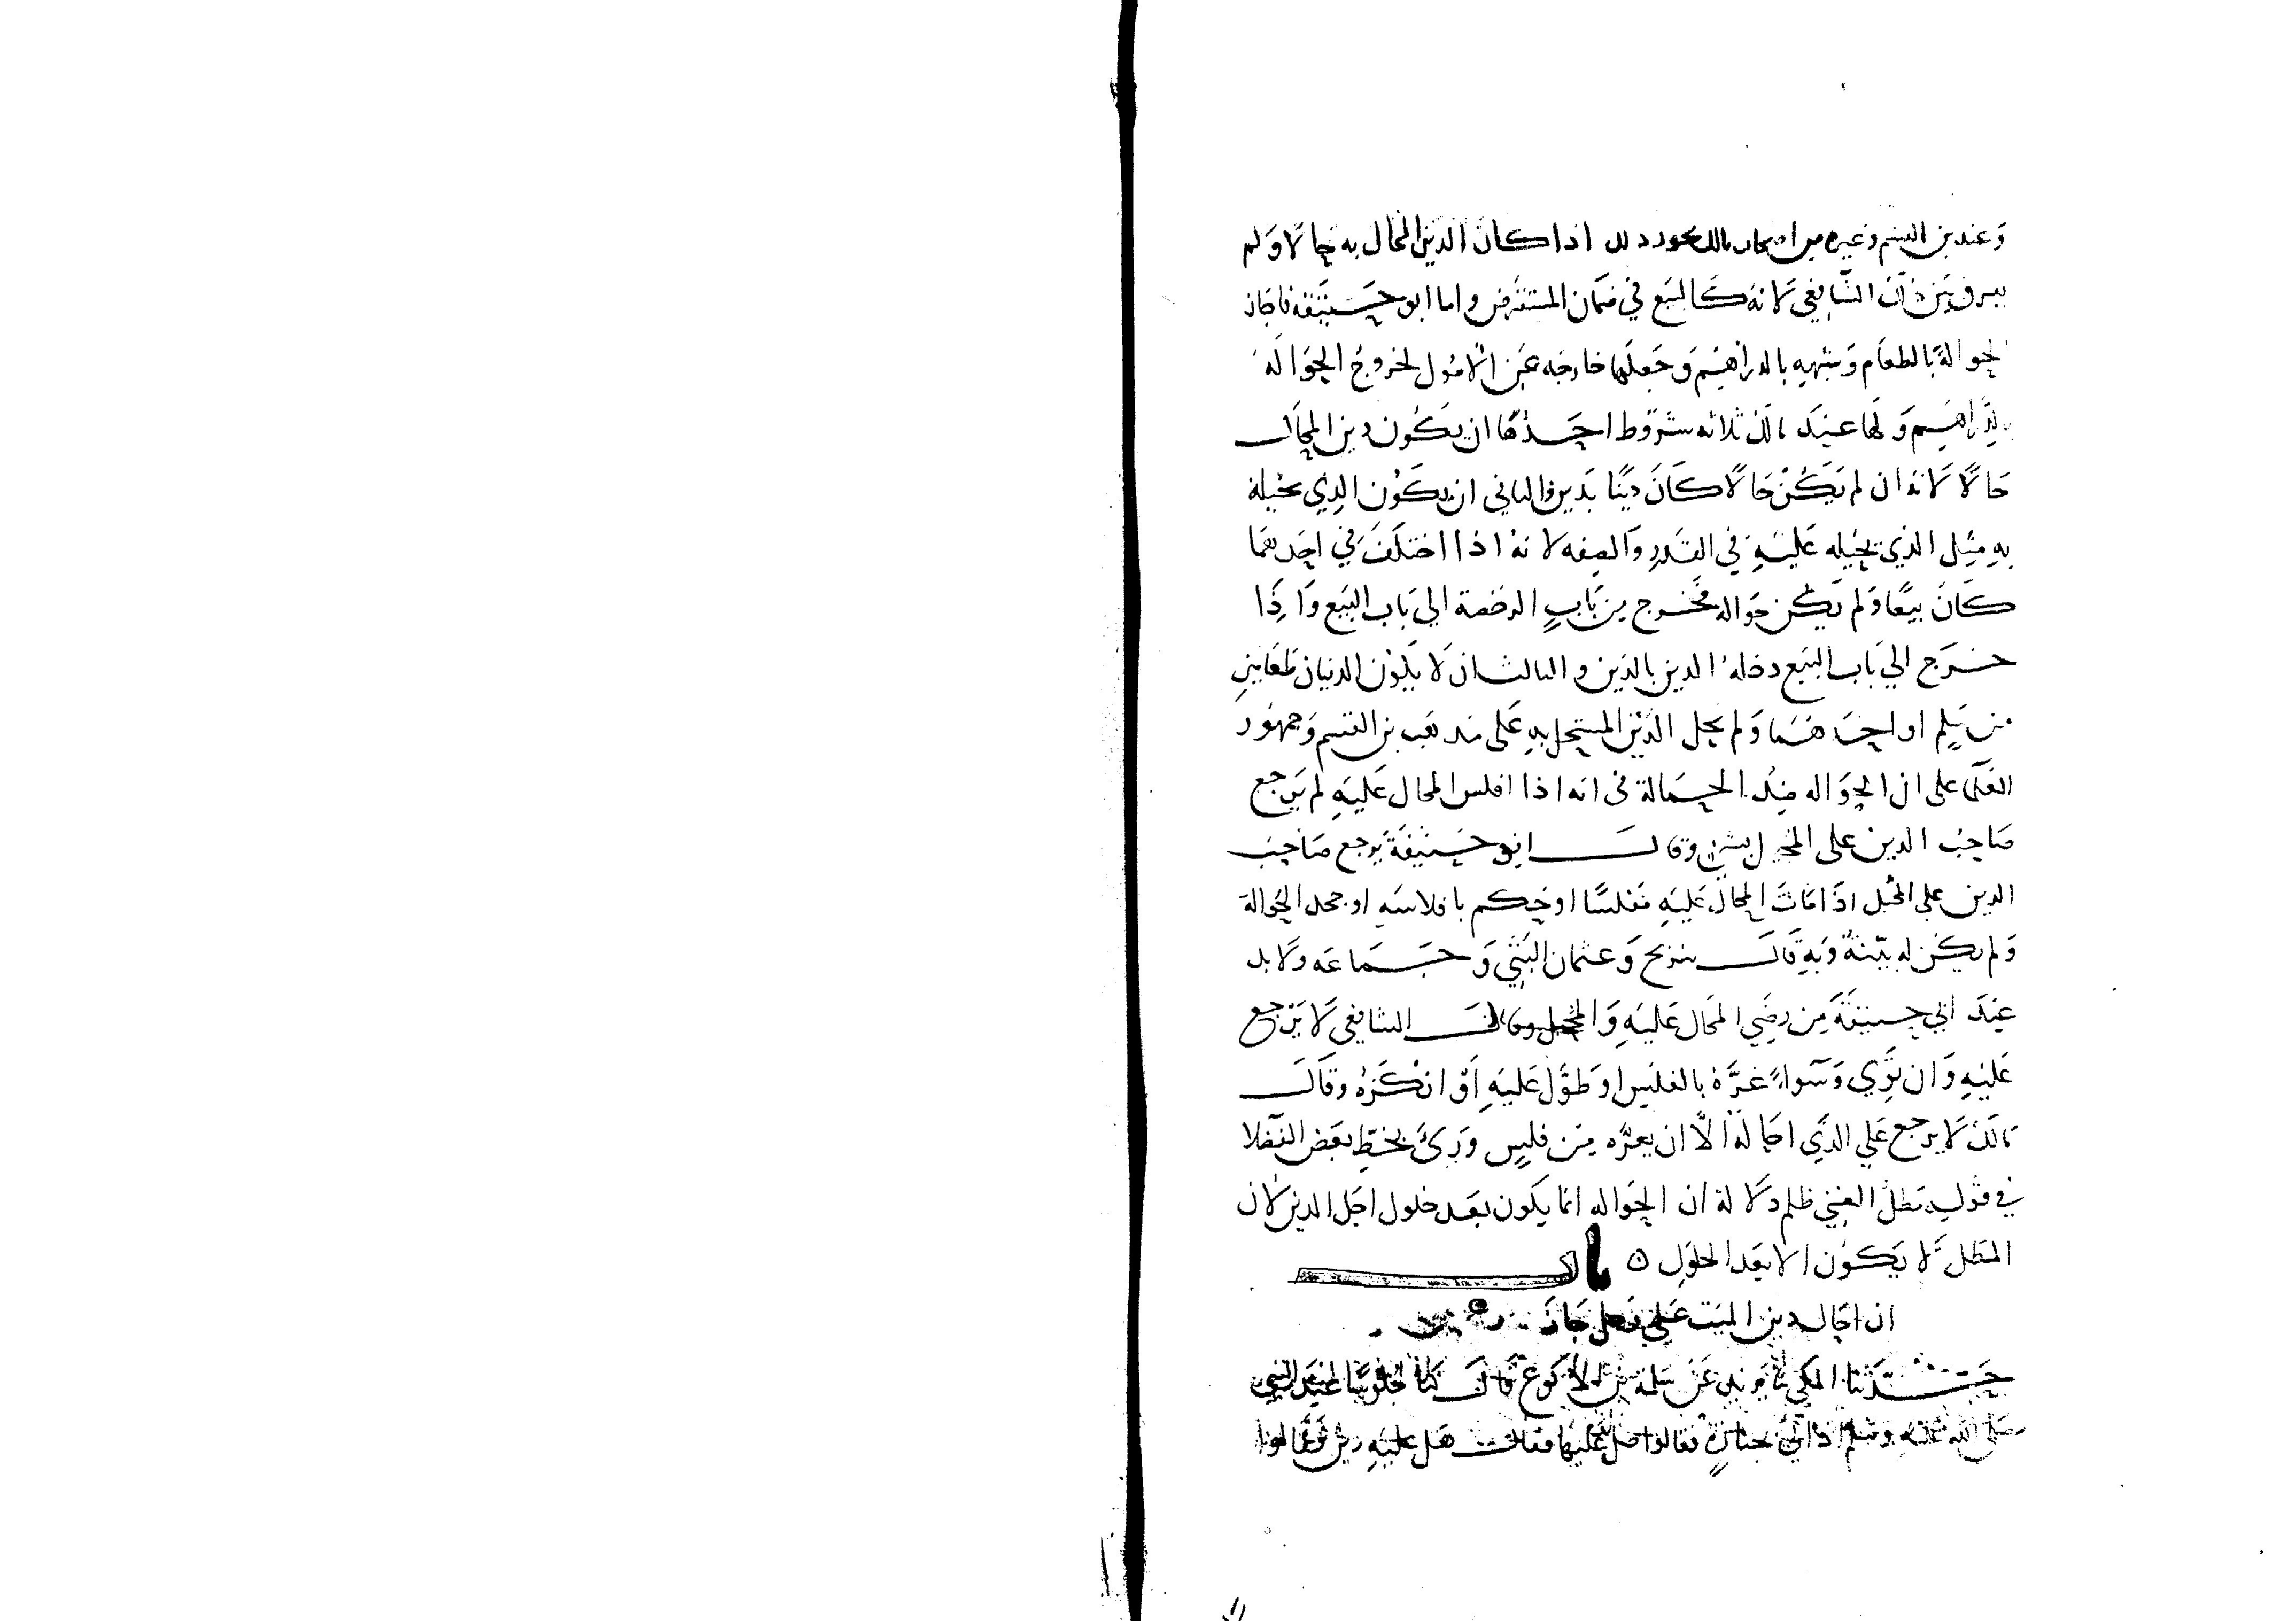 وعند بن القسم وغيره من اصحاب مالك يجوز ذلك اذا كان الدين المحال به حالا ولم
يفرق بين ذلك الشافعي لانه كالبيع في ضمان المستقرض واما ابو حنيفة فاجاز
الحوالة بالطعام وشبهه بالدراهم وجعلها خارجه عن الاصول لخروج الحوالة
بالدراهم ولها عند مالك ثلاثه شروط احدها ان يكون دين المحال
حالا لانه ان لم يكن حالا كان دينا بدين والثاني ان يكون الذي يحيله
به مثل الذي يحيله عليه في القدر والصفه لانه اذا اختلف في احدهما
كان بيعا ولم يكن حواله فخرج من باب الرخصة الي باب البيع واذا
خرج الي باب البيع دخله الدين بالدين والثالث ان لا يكون الدينان طعامين
من سلم او احدهما ولم يحل الدين المستحل به على مذهب بن القسم وجمهور
العلما على ان الحواله ضد الحمالة في انه اذا افلس المحال عليه لم يرجع
صاحب الدين على المحيل بشي وقال ابو حنيفة يرجع صاحب
الدين علي المحيل اذا مات المحال عليه مفلسا او حكم بافلاسه او جحد الحوالة
ولم يكن له بينة وبه قال شريح وعثمان البتي وجماعه ولا بد
عند ابي حنيفة من رضي المحال عليه والمحيل وقال الشافعي لا يرجع
عليه وان توي وسواء غره بالفلس او طول عليه او انكره وقال
مالك لا يرجع علي الذي احاله الا ان يغره من فلس ورئ بخط بعض الفضلا
في قوله مطل الغني ظلم دلالة ان الحواله انما يكون بعد حلول اجل الدين لان
المطل لا يكون الا بعد الحلول ٥ باب
ان احال دين الميت علي رجل جاز
حدثنا المكي نا يزيد عن سلمة بن الاكوع قال كنا جلوسا عند النبي
صلى الله عليه وسلم اذ اتي بجنازة فقالوا صل عليها فقال هل عليه دين قالوا